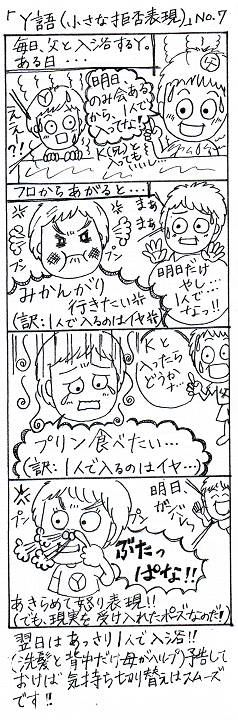 「Y語(小さな拒否表現)」NO.7
毎日、父と入浴するY。
ある日・・・
明日、
のみ会ある
から、1人で
入ってな!!
父
Y
ええ?!
K(兄)と
入っても
いいし…
フロからあがると…
まぁ
まぁ
プン
プン
明日だけ
やし…
1人で
なっ!!
みかんがり
行きたい*
(訳:1人で入るのはイヤ*)
Kと
入ったら
どうかナ…
プリン食べたい…
(訳:1人で入るのはイヤ…)
プン
プン
明日、
ガンバレ
ぶたっ
ぱな!!
Y
あきらめて怒り表現!!
(でも、現実を受け入れたポーズなのだ!)
翌日はあっさり1人で入浴!!
(洗髪と背中だけ母がヘルプ)予告して
おけば気持ち切り替えはスムーズ
です!!